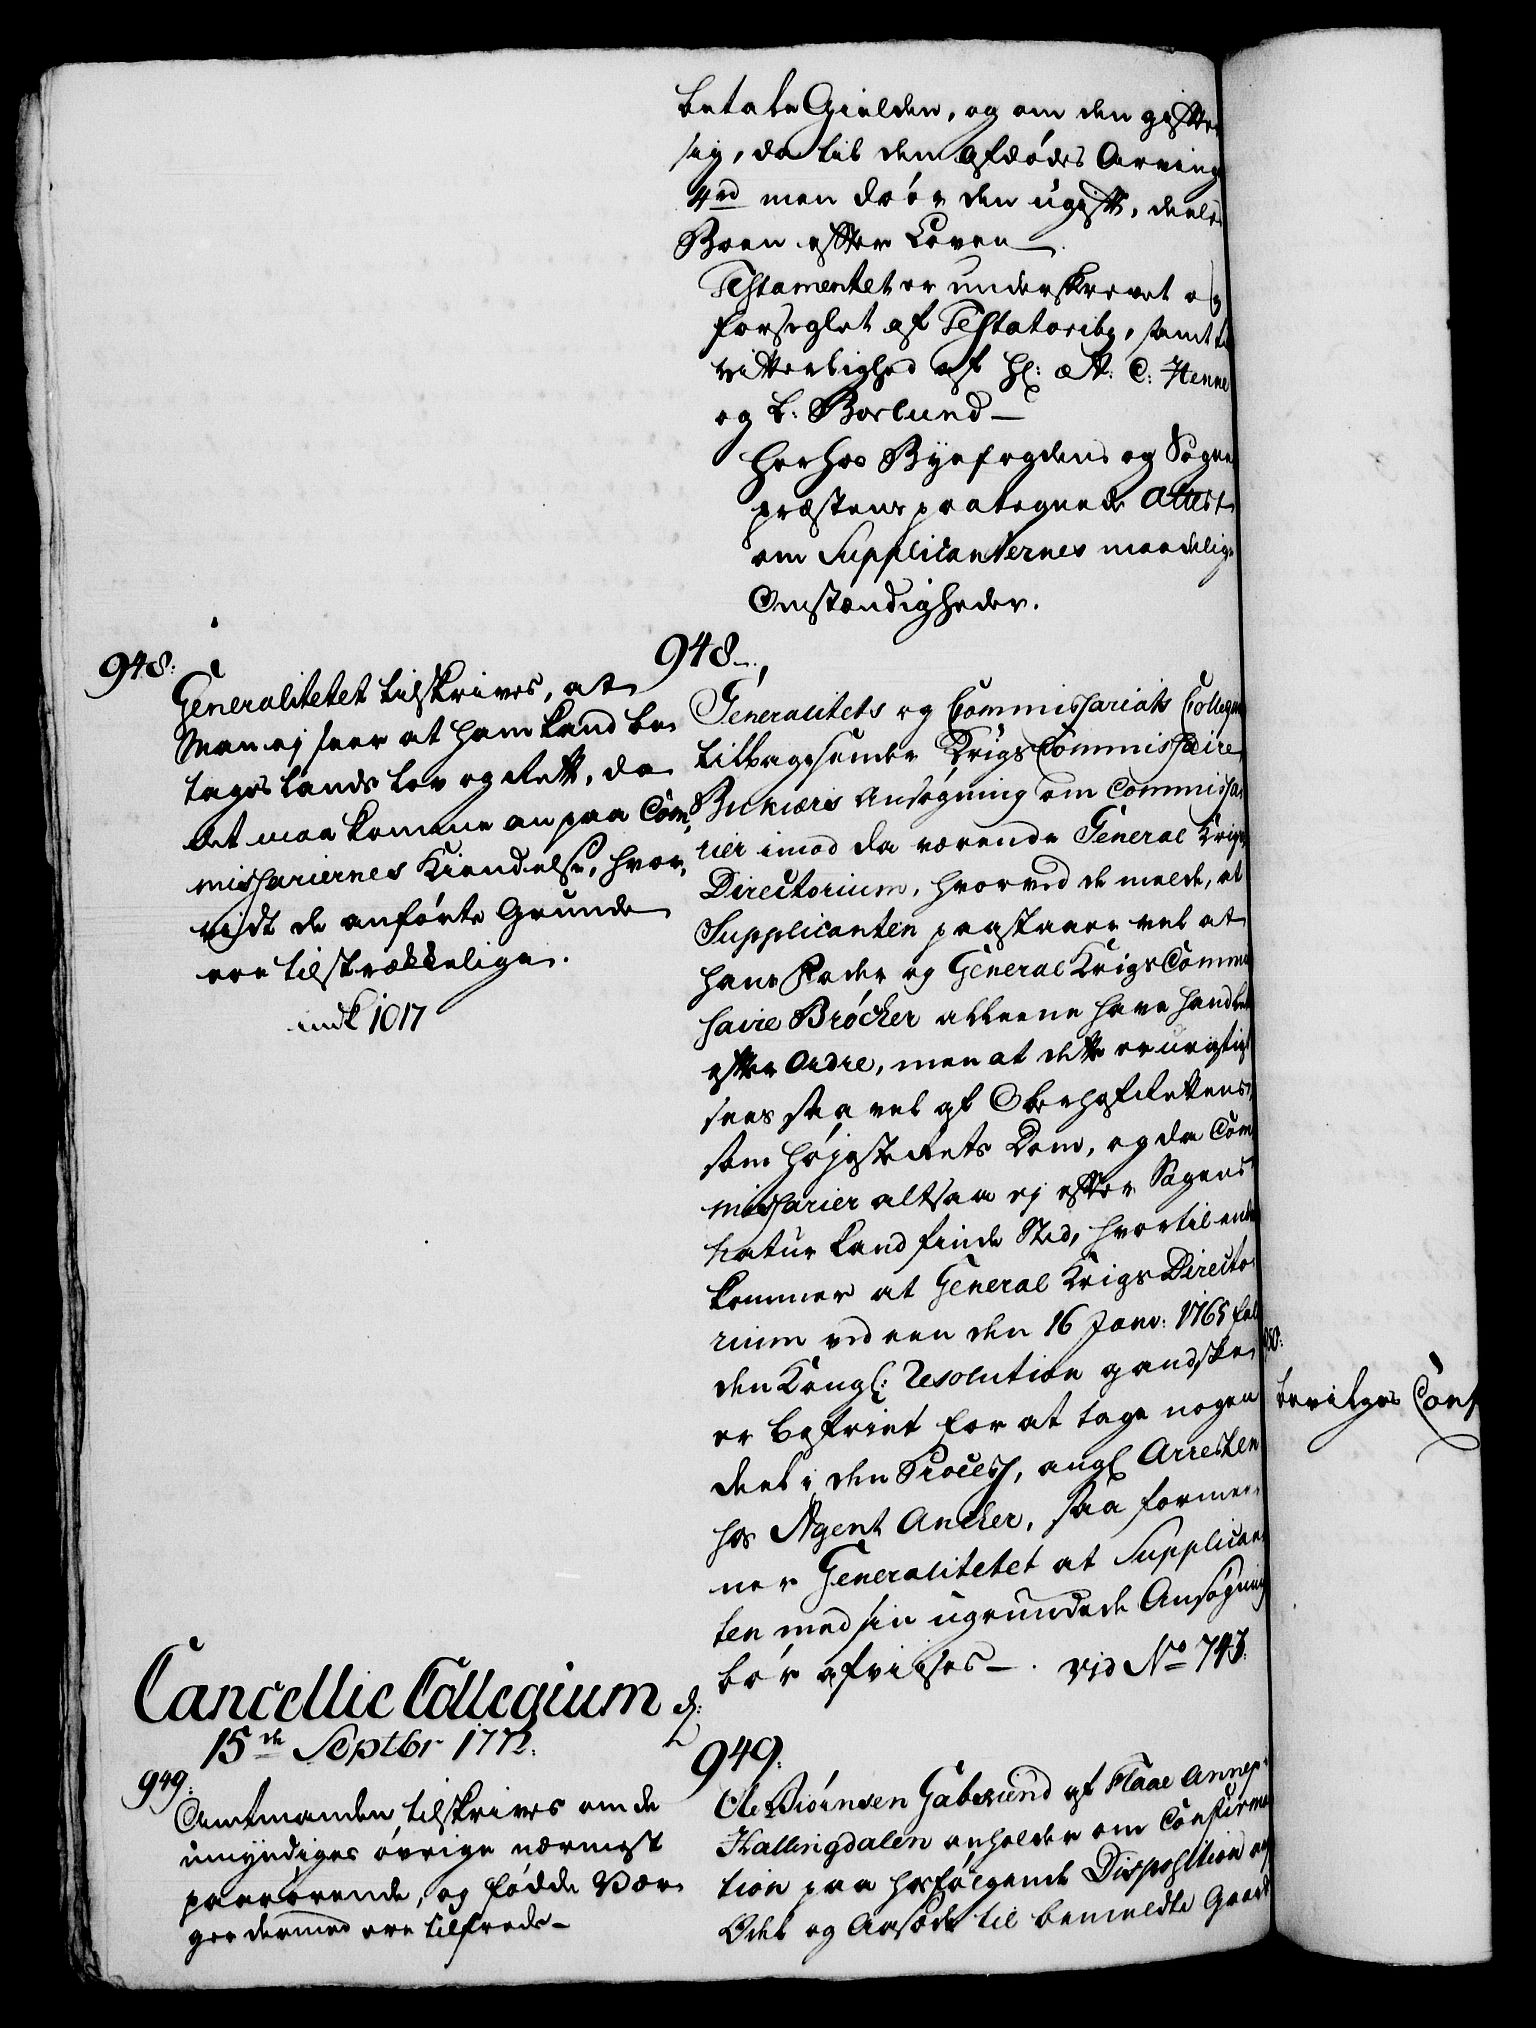 betale Gielden, og om den gifter
sig, da til den Afdødes Arving
4 rd men døer den ugift, deeles
Boen efter Loven
Testamentet er underskrevet og
forseglet af Testatoriby, samt til
vitterlighed af Hl: C: Henne
og L: Borlund
Herhos Byefogdens og Sogne
præstens paategnede Attest
om Supplicanternes maadelige
Omstændigheder.
948:
Generalitetet tilskrives, at
Man ej seer at ham kand be
tages Lands Lov og Rett, da
det maa komme an paa Com
missariernes Kiendelse, hvor
vidt de anførte Grunde
ere tilstrækkelige.
indk 1017
948
Generalitets og Commissariats Colleg
tilbagesender Krigs Commissaire
Ansøgning om Commissa
rier imod da værende General Krigs
Directorium, hvorved de melde, at
Supplicanten paastaaer vel at
hans Fader og General Krigs Commis
saire Brøcker alleene have handlet
efter Ordre, men at dette er urigtigt
sees saa vel af Oberhofrettens
som Højeste Rets Dom, og da Com
missarier altsaa ej efter Sagens
Natur kand finde Sted, hvortil end
kommer at General Krigs Directo
rium ved een den 16 Janv: 1765 fal
den Kongl: Resolution gandske
er befriet for at tage nogen
deel i den Process, angl Arresten
hos Agent Ancher, saa formee
ner Generalitetet at Supplican
ten med sin ugrundede Ansøgning
bør afviises. vid No 743.
Cancellie Collegium d:
15de Septbr 1772.
949:
Amtmanden tilskrives om de
umyndiges øvrige nærmest
paarørende, og fødde Vær
ger dermed ere tilfreds
949:
Ole Biørnsen Gabsund af Flaae Annex
Hallingdalen anholder om Confirma
tion paa hosfølgende Disposition ang
Odel og Aasæde til bemeldte Gaard
950:
bevilges Conf